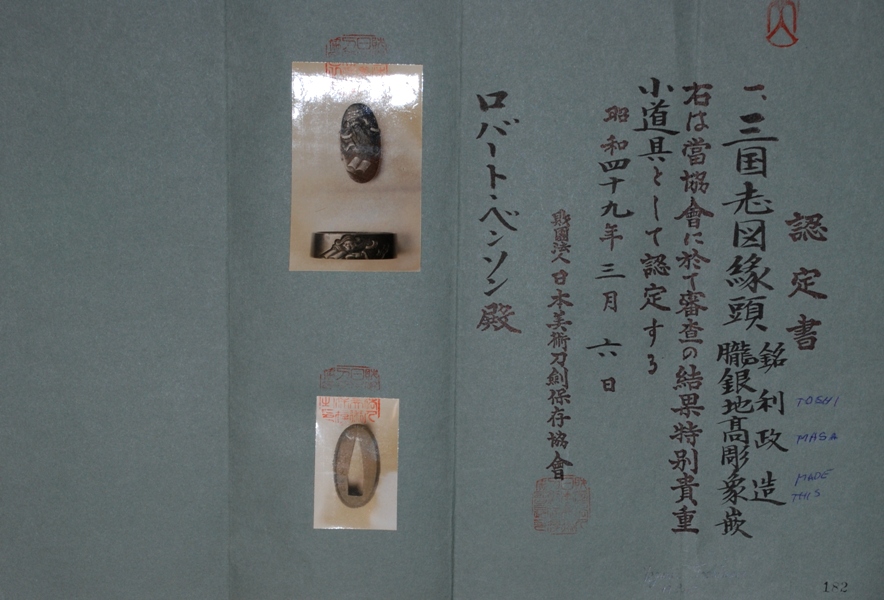 認定書
一、三国志図縁頭、銘 利政造
朧銀地高彫象嵌
右は當協會に於て審査の結果特別貴重
小道具として認定する
昭和四十九年三月六日
財團法人 日本美術刀劍保存協會
ロバート・ベンソン殿
TOSHI
MASA
MADE
THIS
182